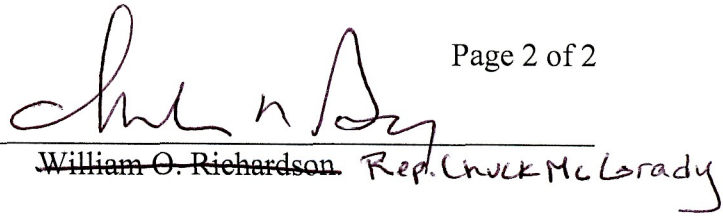 Page 2 of 2
William O. Richardson Rep. Chuck McGrady